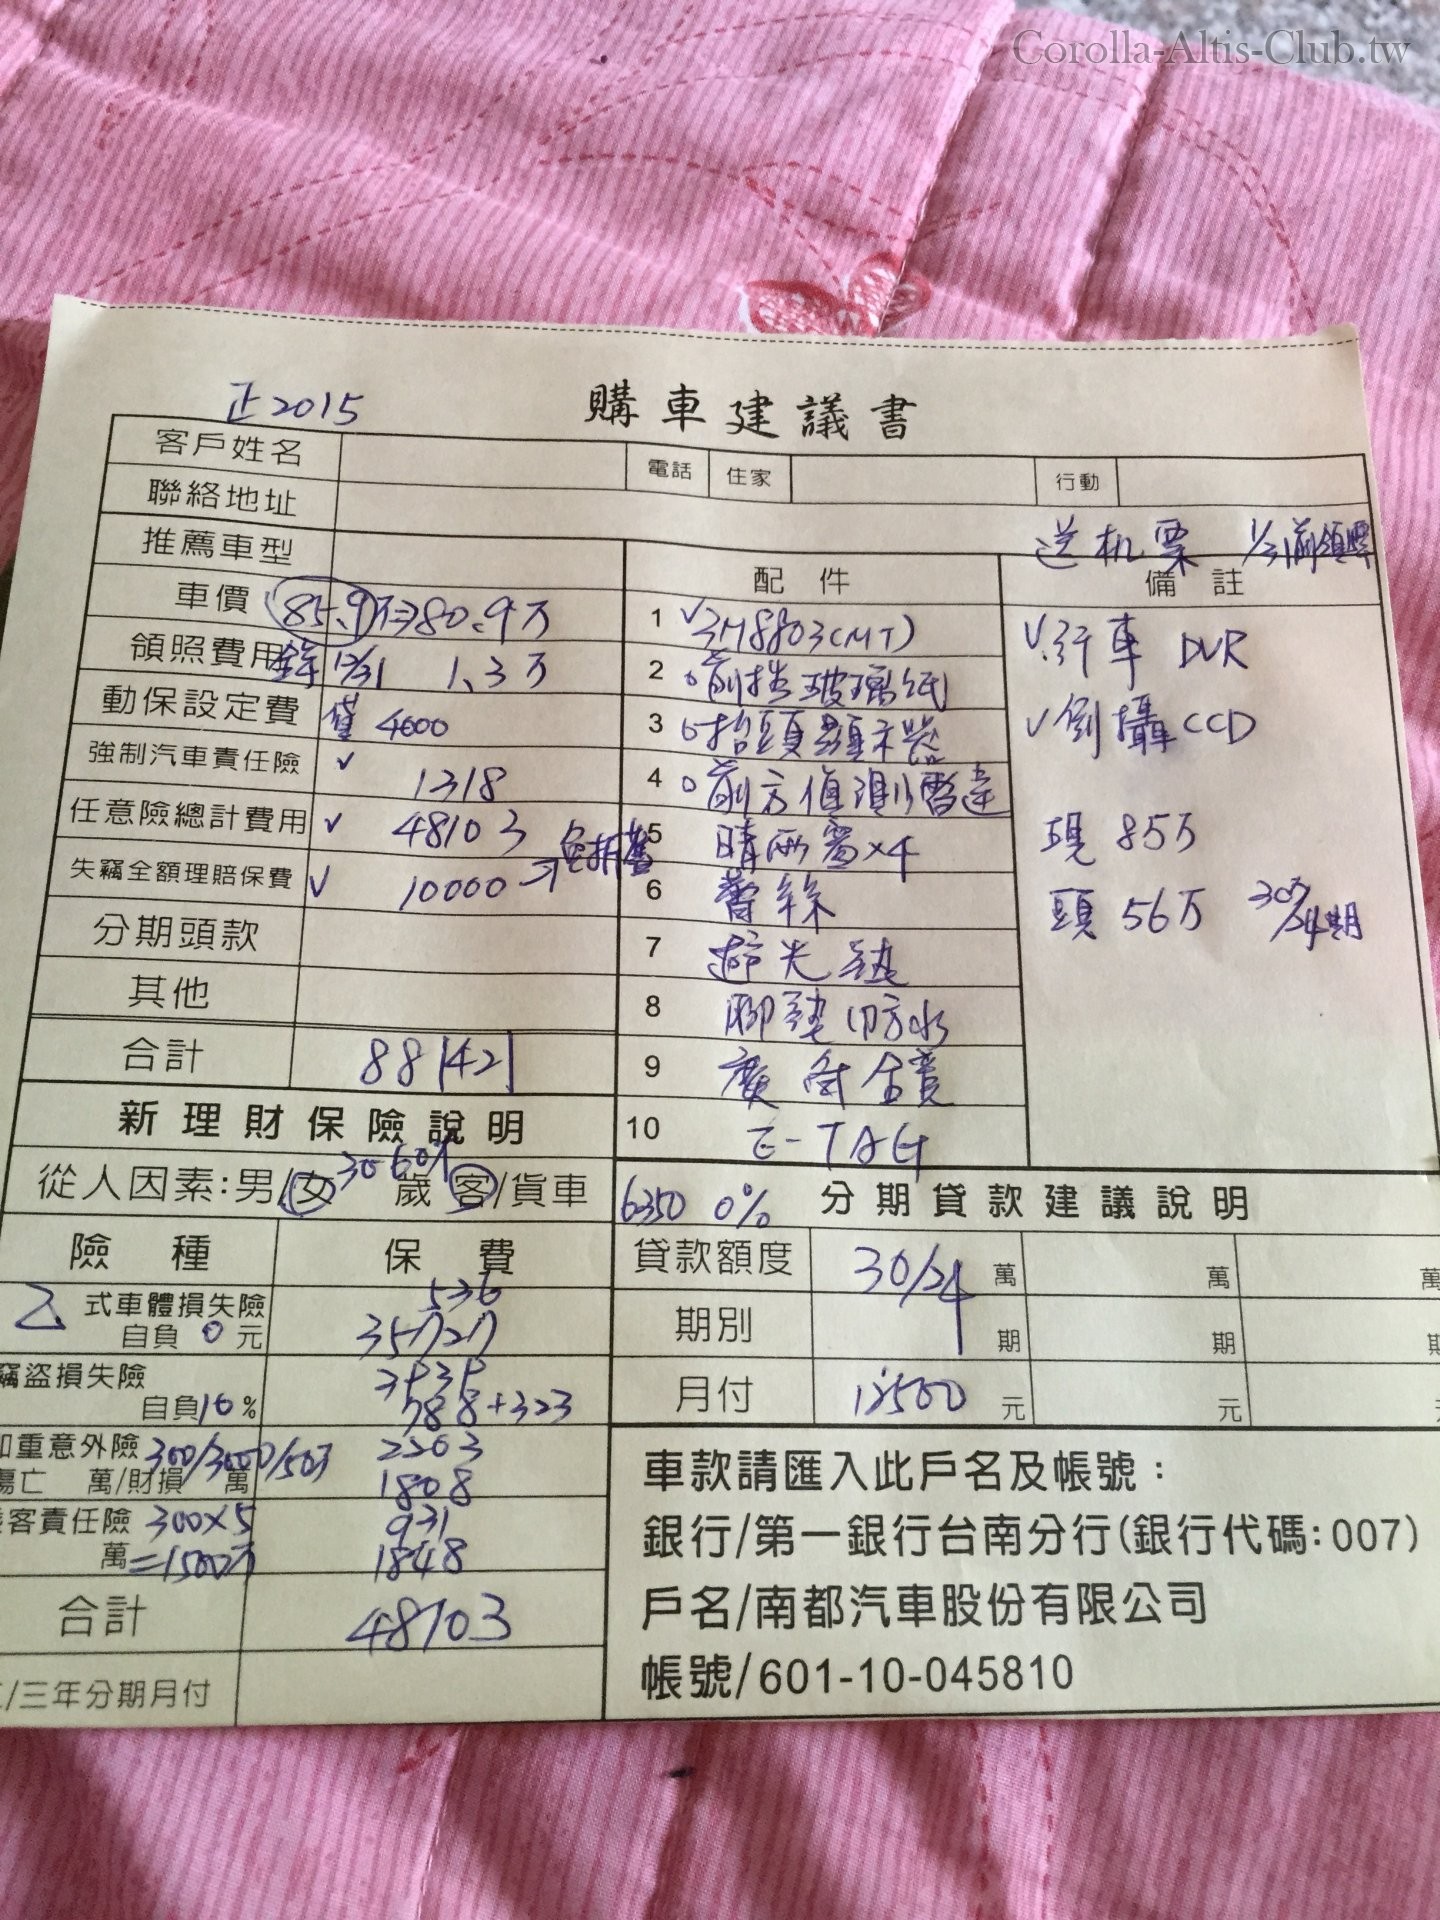 Corolla-Altis-Club.tw
正2015
購車建議書
客戶姓名 電話 住家 行動
聯絡地址
送机票 1/31前領牌
推薦車型
配件 備註
車價 85.9万→80.9万
領照費用 12/31 1.3万
動保設定費 4000
強制汽車責任險 ✓ 1318
任意險總計費用 ✓ 48103
失竊全額理賠保費 ✓ 10000 → 免折舊
分期頭款
其他
合計 88142
1 ✓3M8803(MT)
2 前擋玻璃紙
3 抬頭顯示器
4 前方偵測雷達
5 晴雨窗×4
6
7 避光墊
8 腳墊(防水
9 廣角鏡
10 E-TAG
✓行車DVR
✓倒攝CCD
現 85万
頭 56万 30万/24期
新理財保險說明
從人因素:男/女 30-60 歲 客/貨車
險種 保費
乙式車體損失險 536
自負 0 元 35727
竊盜損失險 3535
自負10% 788+323
加重意外險 300/3000/50万 2303
傷亡 萬/財損 萬 1808
客責任險 300×5 931
萬=1500万 1848
合計 48103
/三年分期月付
6350 0% 分期貸款建議說明
貸款額度 30/24 萬 萬 萬
期別 期 期 期
月付 12500 元 元
車款請匯入此戶名及帳號：
銀行/第一銀行台南分行(銀行代碼:007)
戶名/南都汽車股份有限公司
帳號/601-10-045810